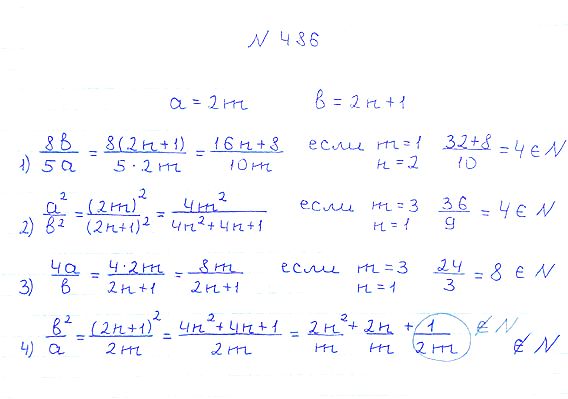 N 436
a = 2m b = 2n+1
1) 8b/5a = 8(2n+1)/5·2m = 16n+8/10m если m=1 n=2 32+8/10 = 4 ∈ N
2) a²/b² = (2m)²/(2n+1)² = 4m²/4n²+4n+1 если m=3 n=1 36/9 = 4 ∈ N
3) 4a/b = 4·2m/2n+1 = 8m/2n+1 если m=3 n=1 24/3 = 8 ∈ N
4) b²/a = (2n+1)²/2m = 4n²+4n+1/2m = 2n²/m + 2n/m + 1/2m ∉ N ∉ N